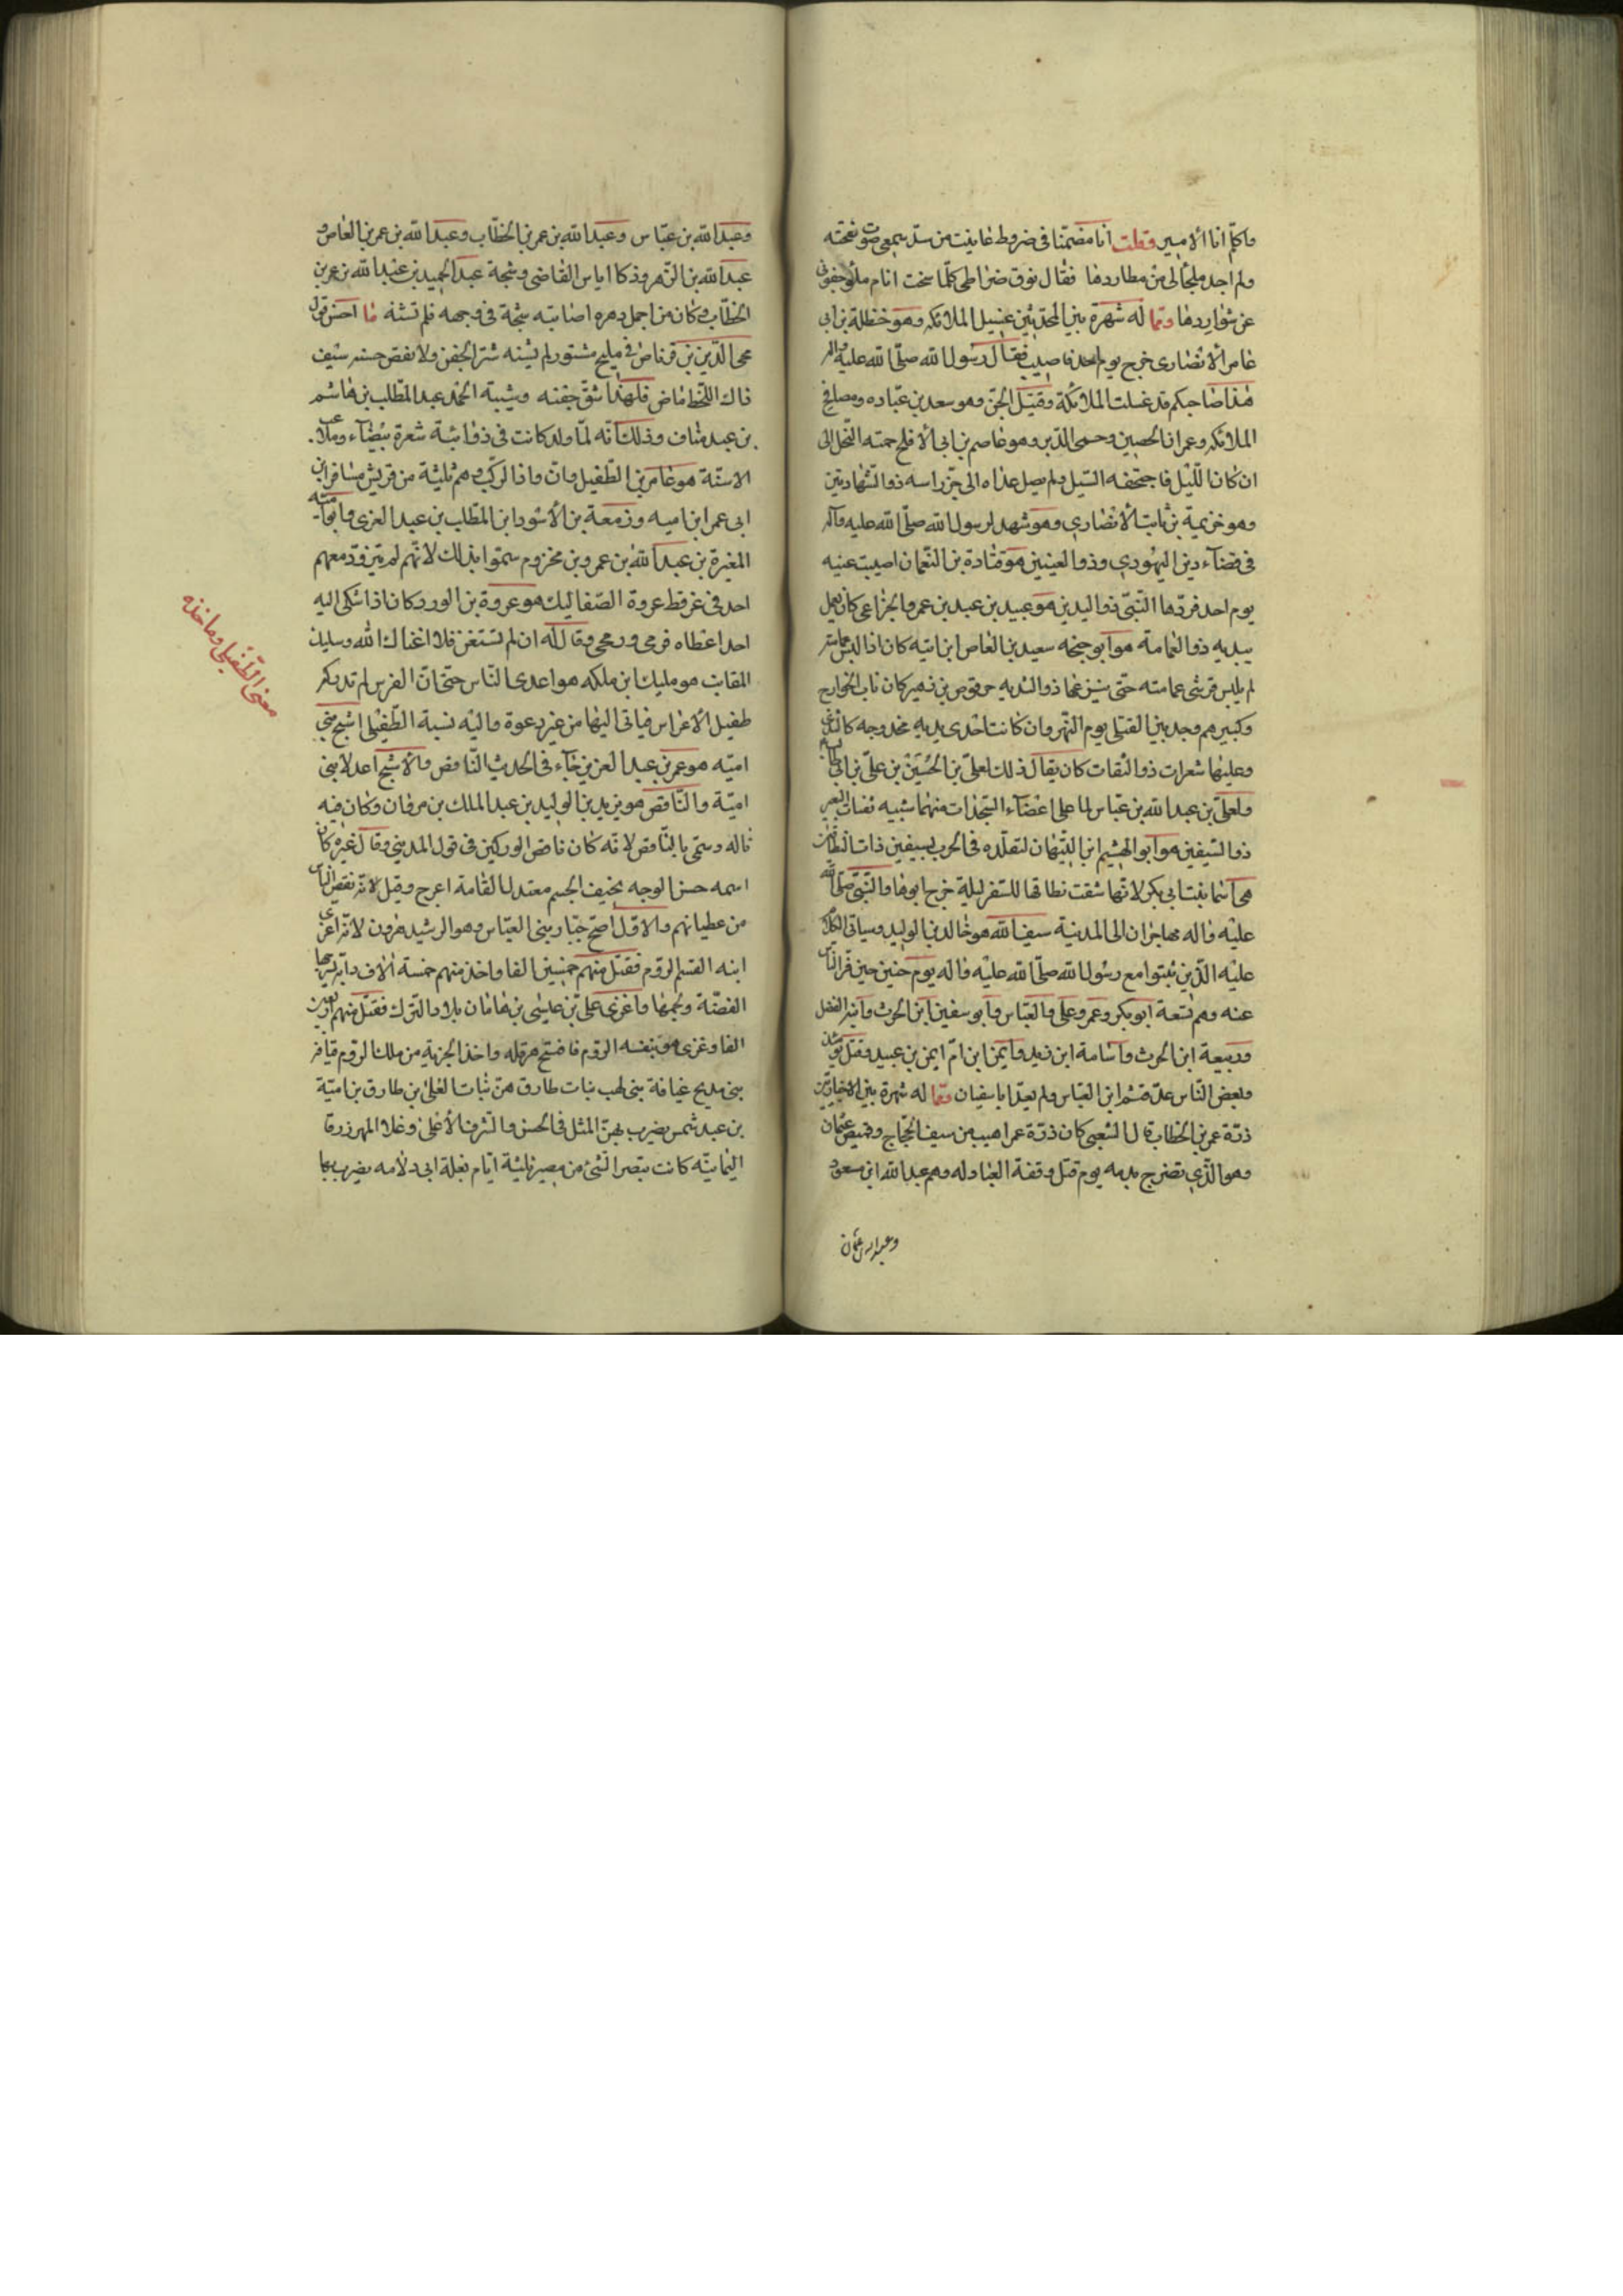 واكلم انا الامير وقلت انا مضمنا فى ضروط غابنت من سد سمعى صوت نفخته
ولم اجد ملجئا لى من مطاردها فقال نوق ضراطى كلما سخت انام ملؤ جفونى
عن شواردها ومما له شهرة بين المحدثين غسيل الملائكه وهو حنظلة بن ابى
عامر الانصارى خرج يوم احد فاصيب فقال رسول الله صلى الله عليه واله
هذا صاحبكم قد غسلت الملائكة وقتيل الجن وهو سعد بن عباده ومصافح
الملائكه وعمران الحصين وحمى الدبر وهو عاصم بن ابى الافلح حمته النحل الى
ان كان الليل فاجتحفه السيل ولم يصل عداه الى جز راسه ذو الشهادتين
وهو خزيمة بن ثابت الانصارى وهو شهد لرسول الله صلى الله عليه واله
فى قضاء دين اليهودى وذو العينين هو قتادة بن النعمان اصيبت عنيه
يوم احد فردها النبى ذو اليدين هو عبيد بن عبد بن عمرو الخزاعى كان يعمل
بيديه ذو العمامة هو ابو جنحه سعيد بن العاص ابن اميه كان اذا لبس عمامته
لم يلبس قرشى عمامته حتى ينزعها ذو الثديه حرقوص بن زهير كان ناب الخوارج
وكبيرهم وجد بين القتلى يوم النهروان كانت احدى يديه مخدوجه كالثدى
وعليها شعرات ذو الثفنات كان يقال ذلك لعلى بن الحسين بن على بن ابى طالب
ولعلى بن عبد الله بن عباس لما على اعضاء السجدات منهما شبيه ثفنات البعير
ذو السيفين هو ابو الهيثم ابن التيهان لتقلده فى الحرب بسيفين ذات النطاقين
هى اسما بنت ابى بكر لانها شقت نطاقها للسفر ليلة خرج ابوها والنبى صلى الله
عليه واله مهاجران الى المدينة سيف الله هو خالد بن الوليد وسياتى الكلام
عليه الذين ثبتوا مع رسول الله صلى الله عليه واله يوم حنين حين فر الناس
عنه وهم تسعة ابو بكر وعمر وعلى والعباس وابو سفين ابن الحرث وابنه الفضل
وربيعة ابن الحرث واسامة ابن زيد وايمن ابن ام ايمن بن عبيد وقتل يومئذ
وبعض الناس عد قثم ابن العباس ولم يعد ابا سفيان ومما له شهرة بين الاخباريين
درة عمر بن الخطاب قال الشعبى كان درة عمر اهيب من سيف الحجاج وقميص عثمان
وهو الذى تضرج بدمه يوم قتل وقفة العبادله وهم عبد الله ابن مسعود
وعبد الله بن عباس وعبد الله بن عمر بن الخطاب وعبد الله بن عمر بن العاص و
عبد الله بن الزهر وذكا اياس القاضى وشجة عبد الحميد بن عبد الله بن عمر بن
الخطاب وكان من اجمل دهره اصابته شجة فى وجهه فلم تشنه ما احسن قول
محى الدين بن قرناص فى مليح مشتور لم يشنه شتر الجفن ولا نقص حسنه سيف
ذاك اللحظ ماض فلهذا شق جفنه وشيبة الحمد عبد المطلب بن هاشم
بن عبد مناف وذلك انه لما ولد كانت فى ذؤابته شعرة بيضاء وملاعب
الاسنة هو عامر بن الطفيل وان واذا لركب وهم ثلثة من قريش مسافر ابن
ابى عمر ابن اميه وزمعة بن الاسود ابن المطلب بن عبد العزى وابو امية
المغيرة بن عبد الله بن عمر وبن مخزوم سموا بذلك لانهم لم يتزود معهم
احد فى غر قط عروة الصعاليك هو عروة بن الورد كان اذا شكى اليه
احد اعطاه فرمى ورمحى وقال له ان لم تستغن فلا اغناك الله وسليك
المقانب هو مليك ابن ملكه هو اعدى الناس حتى ان الفرس لم تدركه
طفيل الاعراس فياتى اليها من غير دعوة واليه نسبة الطفيلى اشج بنى
اميه هو عمر بن عبد العزيز جاء فى الحديث الناقص والاشج اعدلا بنى
امية والناقص هو يزيد بن الوليد بن عبد الملك بن مروان وكان فيه
ثاله وسمى بالناقص لانه كان ناقص الوركين فى قول المدينى وقال غيره كان
اسمه حسن الوجه نحيف الجسم معتدل القامة اعرج وقيل لانه نقص الناس
من عطيانهم والاول اصح جبار بنى العباس وهو الرشيد هرون لانه اغزى
ابنه القسم الروم فقتل منهم خمسين الفا واخذ منهم خمسة الاف دابة بسرجها
الفضة ولجمها واغزى على بن عيسى بن هامان بلاد الترك فقتل منهم اربعين
الفا وغزى هو بنفسه الروم فافتتح هرقله واخذ الجزية من ملك الروم قيافر
بنى مدلج عيافة بنى لهب بنات طارق هن بنات العلى بن طارق بن امية
بن عبد شمس يضرب بهن المثل فى الحسن والشرف الاعلى وغلا المهر زرقا
اليمانية كانت تبصر الشئ من مسير ثلثة ايام بغلة ابى دلامه يضرب بها
معنى الطفيلى وماخذه